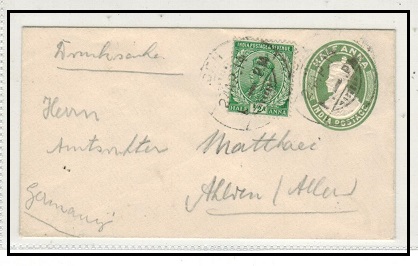 Drucksache
INDIA POSTAGE & REVENUE
HALF ANNA
HALF ANNA
INDIA POSTAGE
Herrn
Amtsrichter Matthaei
Ahlden / Aller
Germany